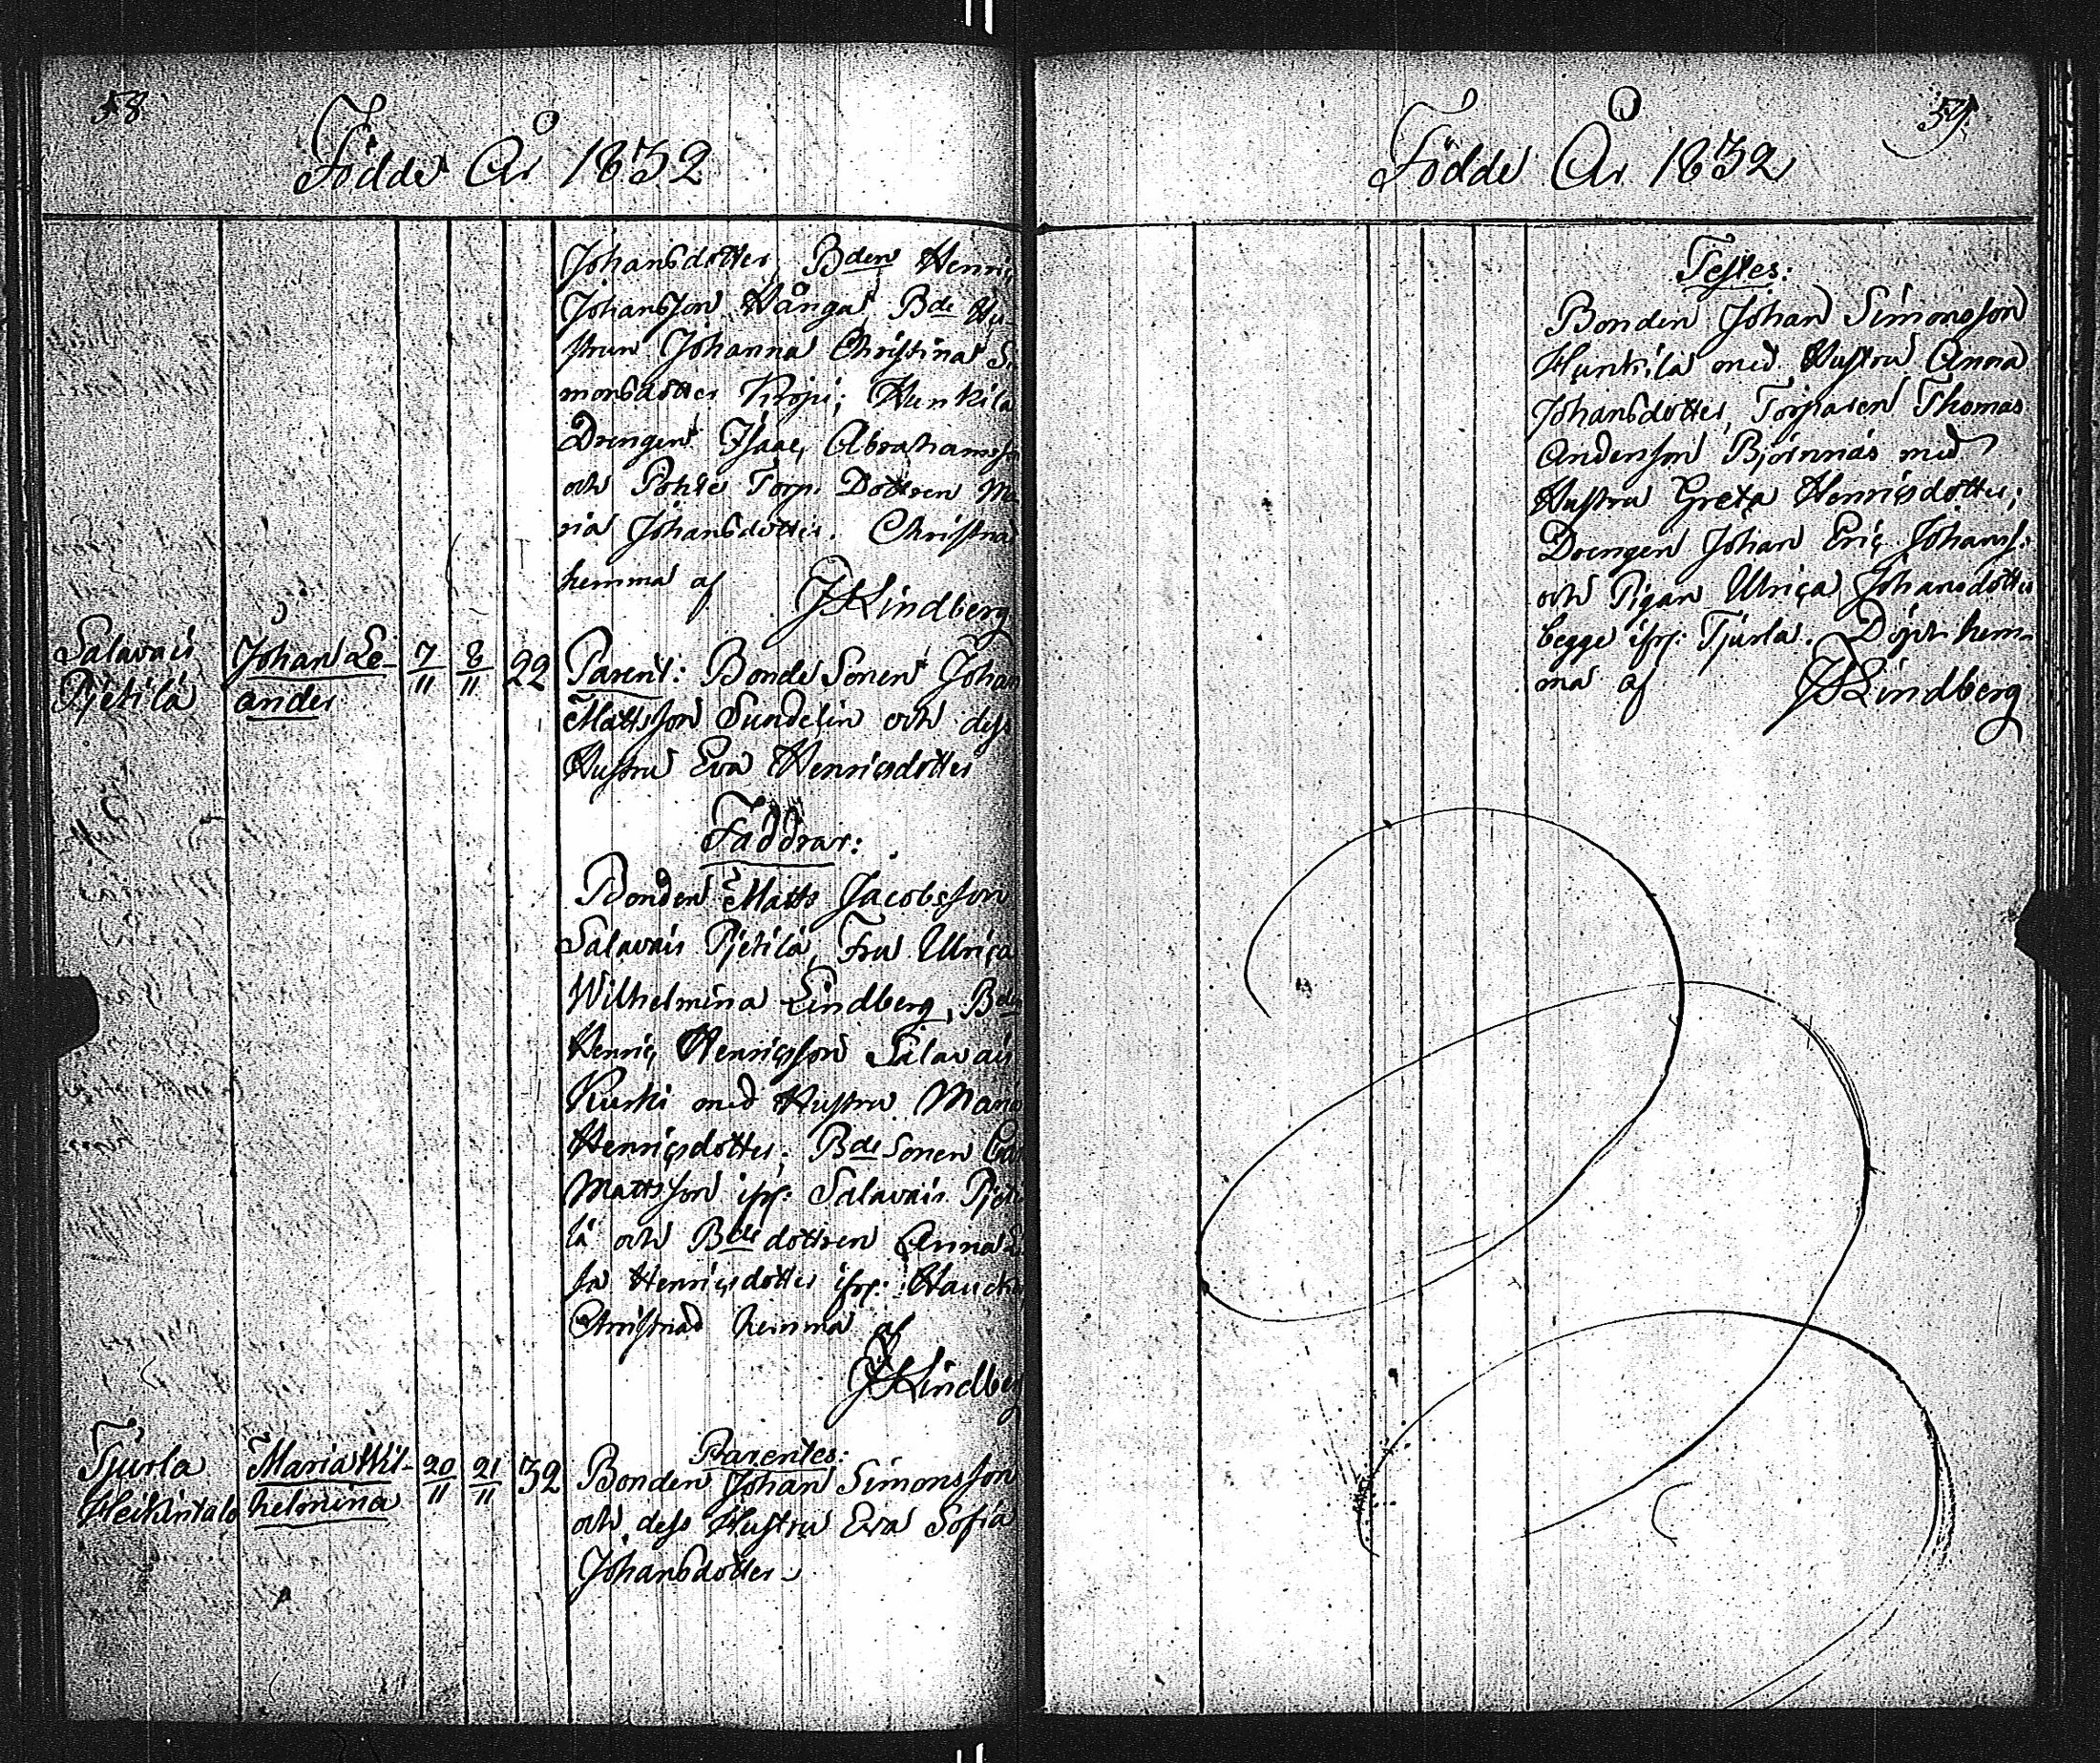 58
Födde År 1832
Johansdotter, Bden Henric
Johansson Hånga, Bde Hu-
strun Johanna Christina Si-
monsdotter Kropi; Hunkila
Drengen Isaac Abrahamsson
och Torp. Dottren Ma
ria Johansdotter. Christnad
hemma af JKLindberg
Salavais Johan Le- 7/11 8/11 22 Parent: Bonde Sonen Johan
Pjetilä ander Mattsson Sundelin och dess
Hustru Eva Henricsdotter
Faddrar:
Bonden Matts Jacobsson
Salavais Pjetilä, Fru Ulrica
Wilhelmina Lindberg, Bden
Henric Henricsson Salavais
Kurki med Hustru Maria
Henricsdotter; Bde Sonen
Mattsson ifr: Salavais Pjeti
lä och Bde dottren Anna Li
sa Henricsdotter ifr:
Christnad hemma af
JKLindberg
Tjurla Maria Wil- 20/11 21/11 32 Parentes:
Heikintalo helmina Bonden Johan Simonsson
och dess Hustru Eva Sofia
Johansdotter
59
Födde År 1832
Testes:
Bonden Johan Simonsson
Hunkila med Hustru Anna
Johansdotter, Torparen Thomas
Andersson Björnnäs med
Hustru Greta Henricsdotter;
Drengen Johan Eric Johanss.
och Pigan Ulrica Johansdotter
begge ifr: Tjurla. Döpt hem-
ma af JKLindberg